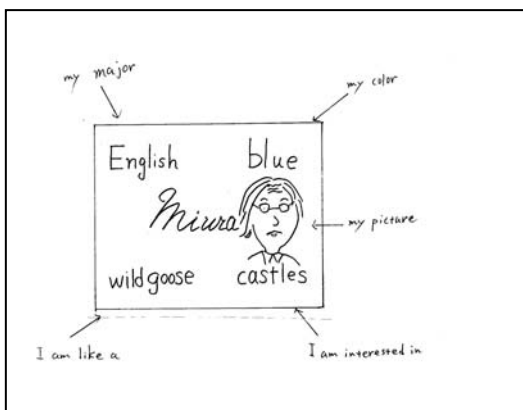 my major
my color
English
blue
Miura
my picture
wild goose
castles
I am like a
I am interested in